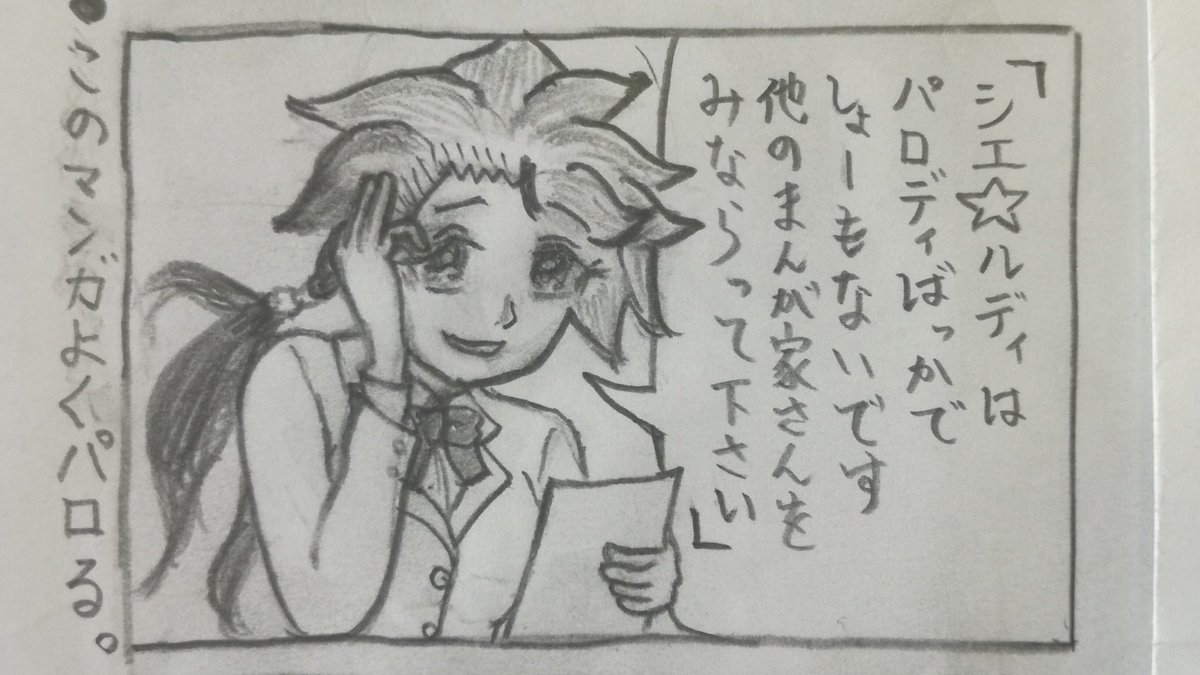 「シエ☆ルディは
パロディばっかで
しょーもないです
他のまんが家さんを
みならって下さい」
・このマンガよくパロる。